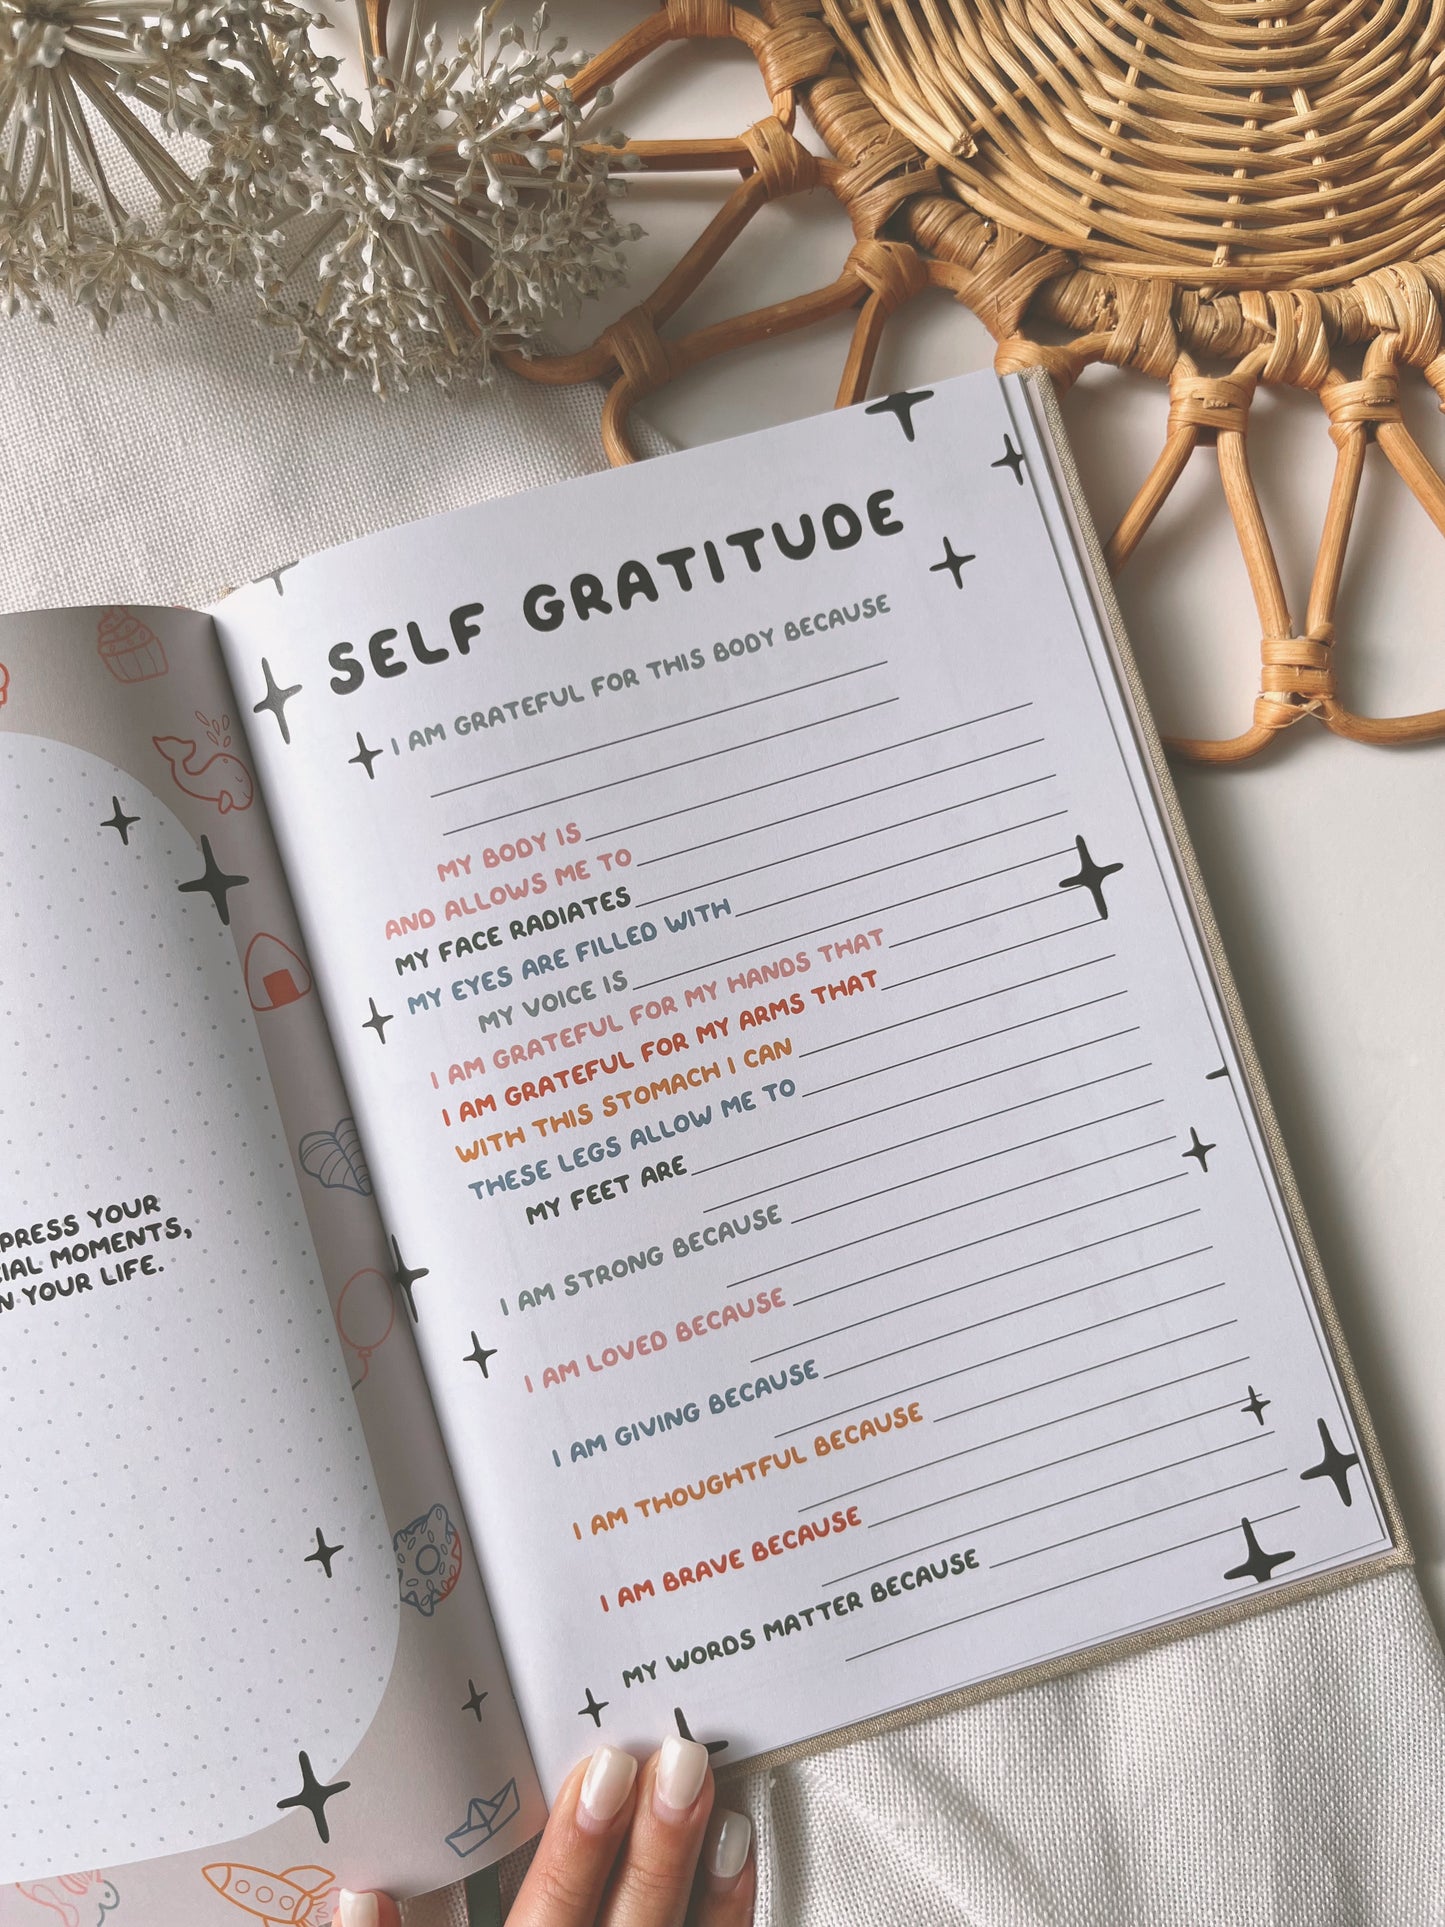 PRESS YOUR
IAL MOMENTS,
N YOUR LIFE.
SELF GRATITUDE
I AM GRATEFUL FOR THIS BODY BECAUSE
MY BODY IS
AND ALLOWS ME TO
MY FACE RADIATES
MY EYES ARE FILLED WITH
MY VOICE IS
I AM GRATEFUL FOR MY HANDS THAT
I AM GRATEFUL FOR MY ARMS THAT
WITH THIS STOMACH I CAN
THESE LEGS ALLOW ME TO
MY FEET ARE
I AM STRONG BECAUSE
I AM LOVED BECAUSE
I AM GIVING BECAUSE
I AM THOUGHTFUL BECAUSE
I AM BRAVE BECAUSE
MY WORDS MATTER BECAUSE